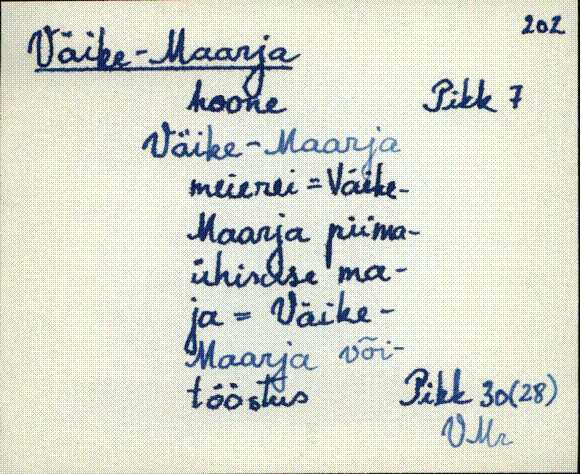 202
Väike-Maarja
hoone Pikk 7
Väike-Maarja
meierei = Väike-
Maarja piima-
ühisuse ma-
ja = Väike-
Maarja või-
tööstus Pikk 30(28)
VMr